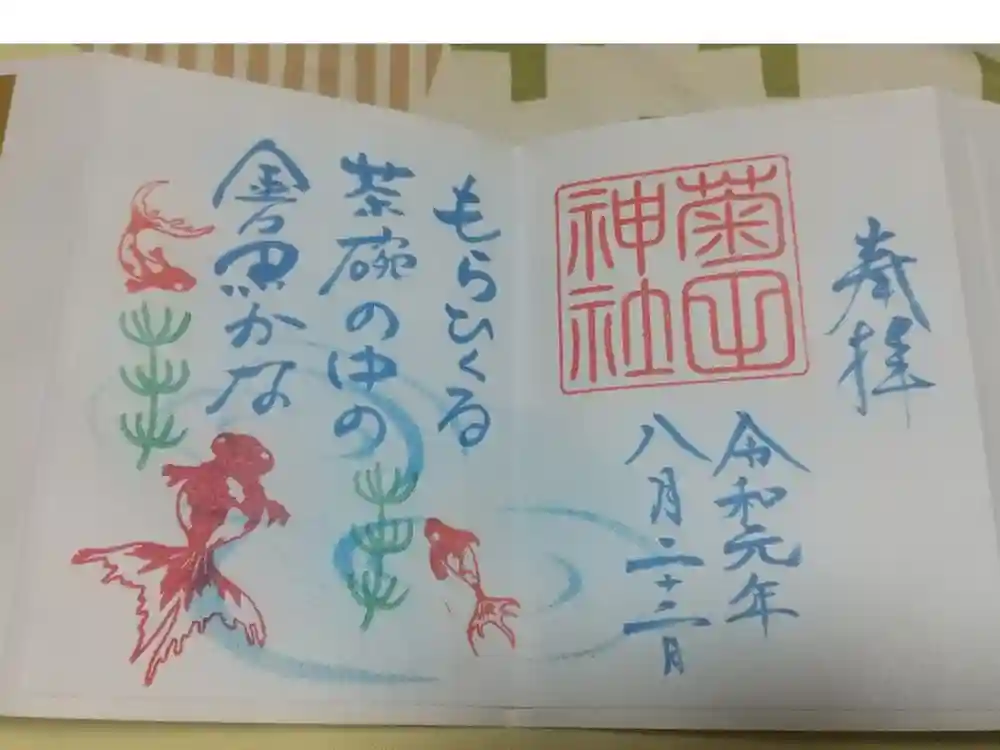 奉拝
菊田
神社
令和元年
八月二十二日
もらひくる
茶碗の中の
金魚かな